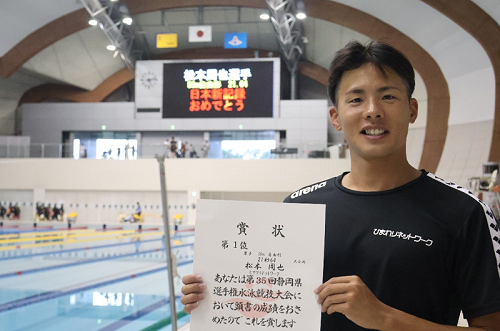 松本周也選手
日本新記録
おめでとう
arena
ひまわりネットワーク
賞状
第1位
男子
自由形
松本 周也
あなたは第35回静岡県
選手権水泳競技大会に
おいて頭書の成績をおさ
めたので これを賞します